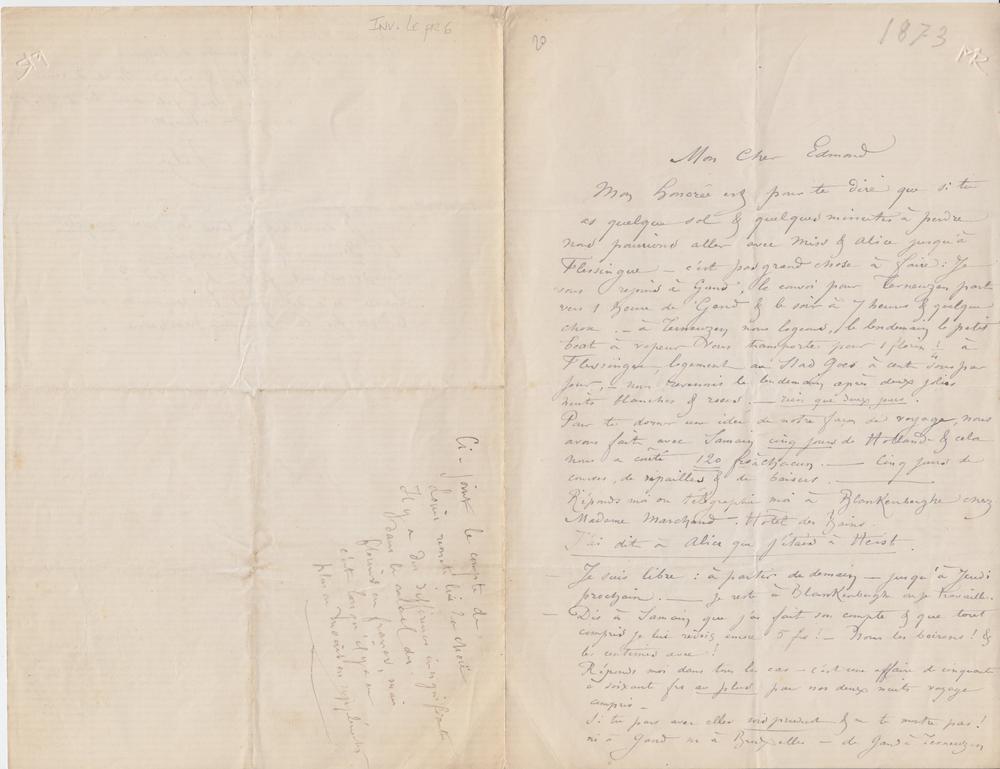 INV. LEpr 6
20
1873
Mon Cher Edmond
Mon honorée est pour te dire que si tu
as quelque sol & quelques minutes à perdre
nous pourions aller avec Miss & Alice jusqu'à
Flessingue – c'est pas grand chose à faire : Je
vous rejoins à Gand, le convoi pour Terneuzen part
vers 1 heure de Gand & le soir à 7 heures & quelque
chose. – à Terneuzen nous logeons, le lendemain le petit
bateau à vapeur vous transporte pour 1 florin à
Flessingue, logement au Stad Goes à cent sous par
jour, – nous revenons le lendemain après deux jolies
nuits blanches & roses. — rien que deux jours.
Pour te donner une idée de notre façon de voyage, nous
avons fait avec Samain cinq jours de Hollande & cela
nous a coûté 120 frs chacun. — Cinq jours de
courses, de ripailles & de baisers. —
Réponds moi ou télégraphie moi à Blankenberghe chez
Madame Marchand. Hôtel des Bains.
J'ai dit à Alice que j'étais à Heist.
– Je suis libre : à partir de demain – jusqu'à Jeudi
prochain. — je reste à Blankenberghe où je travaille.
– Dis à Samain que j'ai fait son compte & que tout
compris je lui redois encore 5 frs ! – Nous les boirons ! &
les centimes avec !
Réponds moi dans tous les cas – c'est une affaire de cinquante
à soixante frs au plus par nos deux nuits voyage
compris –
Si tu pars avec elles sois prudent & ne te montre pas !
ni à Gand ni à Bruxelles – de Gand à Terneuzen
Ci-joint le compte de
Il y a des différences insignifiantes
dans le calcul des
florins en francs mais
c'est lorsqu'il y a en
plus ou moins